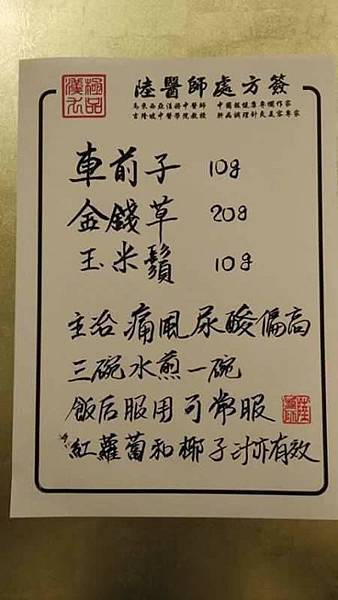 極品
漢方
陸醫師處方簽
馬來西亞注冊中醫師 中國報健康專欄作家
吉隆坡中醫學院教授 新品調理針灸美容專家
車前子 10g
金錢草 20g
玉米鬚 10g
主治 痛風尿酸偏高
三碗水煎一碗
飯后服用可常服
紅蘿蔔和椰子汁亦有效